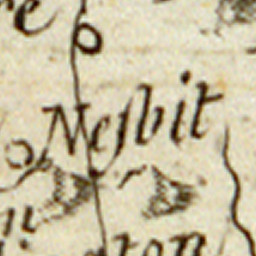 re
Nesbit
ton